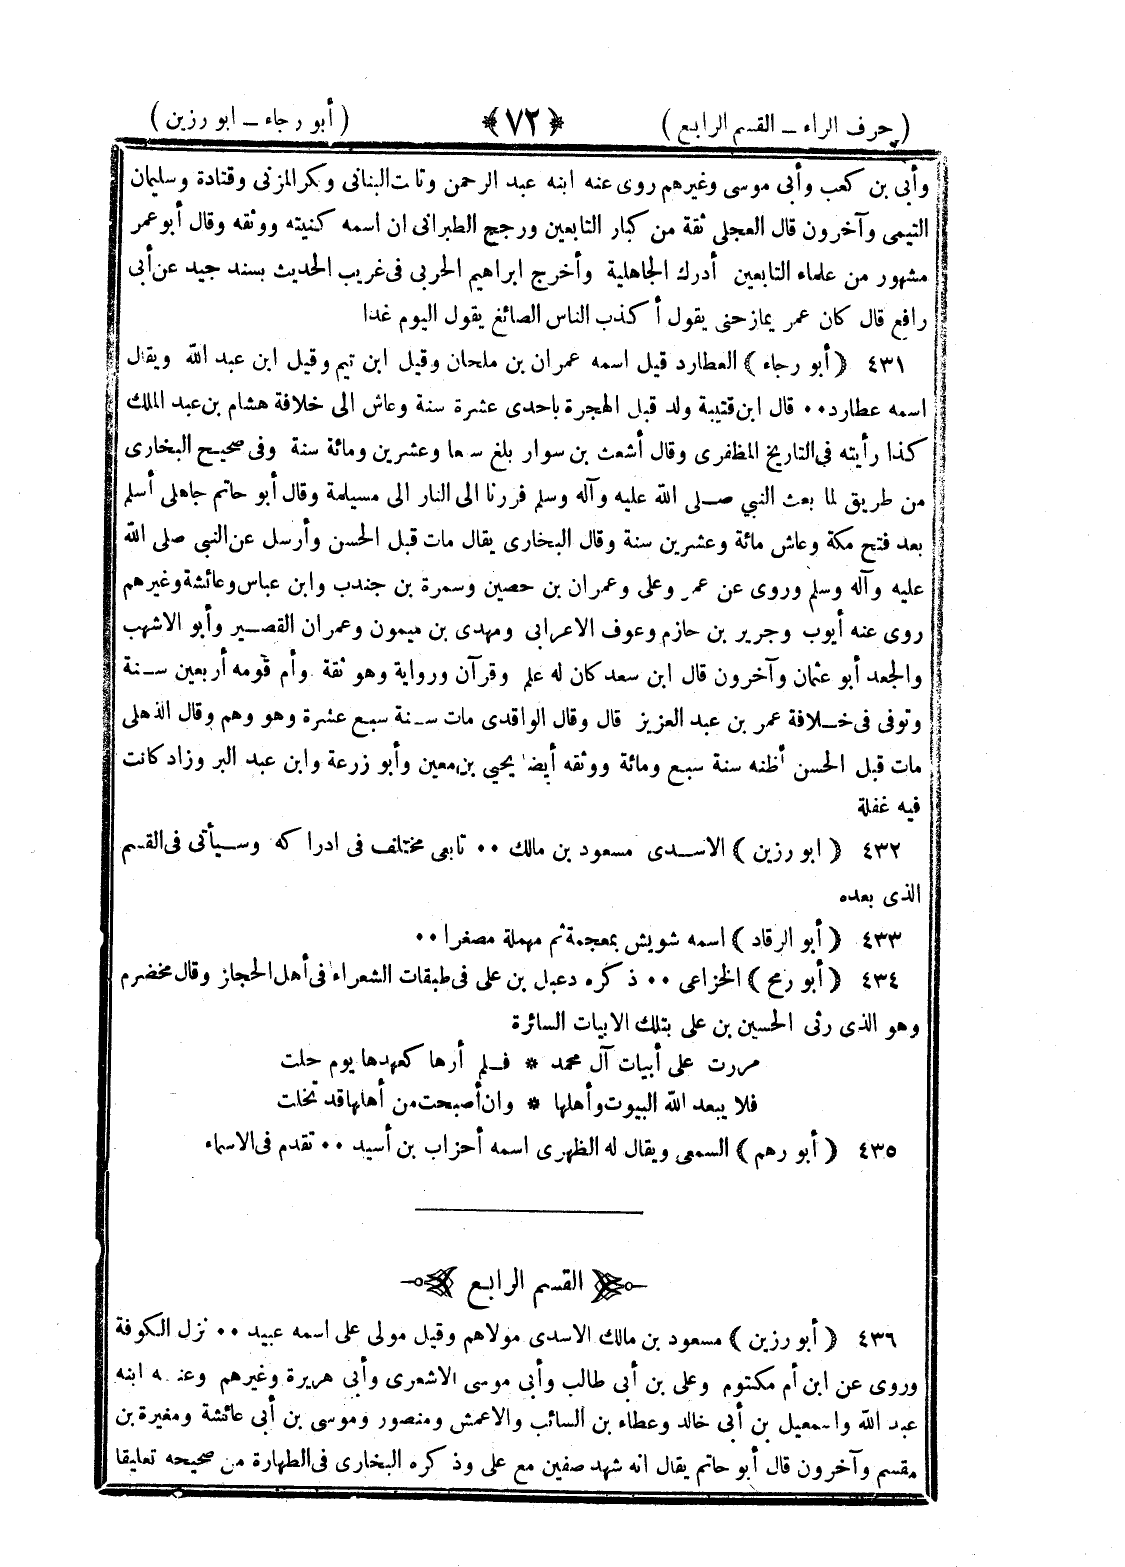 (حرف الراء ــ القسم الرابع) ﴿٧٢﴾ (أبو رجاء ــ ابو رزين)
وأبى بن كعب وأبى موسى وغيرهم روى عنه ابنه عبد الرحمن وثابت البنانى وبكر المزنى وقتادة وسليمان
التيمى وآخرون قال العجلى ثقة من كبار التابعين ورجح الطبرانى ان اسمه كنيته ووثقه وقال أبو عمر
مشهور من علماء التابعين أدرك الجاهلية وأخرج ابراهيم الحربى فى غريب الحديث بسند جيد عن أبى
رافع قال كان عمر يمازحنى يقول أكذب الناس الصائغ يقول اليوم غدا
٤٣١ (أبو رجاء) العطارد قيل اسمه عمران بن ملحان وقيل ابن تيم وقيل ابن عبد الله ويقال
اسمه عطارد٠٠ قال ابن قتيبة ولد قبل الهجرة باحدى عشرة سنة وعاش الى خلافة هشام بن عبد الملك
كذا رأيته فى التاريخ المظفرى وقال أشعث بن سوار بلغ سبعا وعشرين ومائة سنة وفى صحيح البخارى
من طريق لما بعث النبي صلى الله عليه وآله وسلم فررنا الى النار الى مسيلمة وقال أبو حاتم جاهلى أسلم
بعد فتح مكة وعاش مائة وعشرين سنة وقال البخارى يقال مات قبل الحسن وأرسل عن النبى صلى الله
عليه وآله وسلم وروى عن عمر وعلى وعمران بن حصين وسمرة بن جندب وابن عباس وعائشة وغيرهم
روى عنه أيوب وجرير بن حازم وعوف الاعرابى ومهدى بن ميمون وعمران القصير وأبو الاشهب
والجعد أبو عثمان وآخرون قال ابن سعد كان له علم وقرآن ورواية وهو ثقة وأم قومه أربعين سنة
وتوفى فى خلافة عمر بن عبد العزيز قال وقال الواقدى مات سنة سبع عشرة وهو وهم وقال الذهلى
مات قبل الحسن أظنه سنة سبع ومائة ووثقه أيضا يحيى بن معين وأبو زرعة وابن عبد البر وزاد كانت
فيه غفلة
٤٣٢ (ابو رزين) الاسدى مسعود بن مالك ٠٠ تابعى مختلف فى ادراكه وسيأتى فى القسم
الذى بعده
٤٣٣ (أبو الرقاد) اسمه شويش بمعجمة ثم مهملة مصغرا ٠٠
٤٣٤ (أبو رمح) الخزاعى ٠٠ ذكره دعبل بن على فى طبقات الشعراء فى أهل الحجاز وقال مخضرم
وهو الذى رثى الحسين بن على بتلك الابيات السائرة
مررت على أبيات آل محمد * فلم أرها كعهدها يوم حلت
فلا يبعد الله البيوت وأهلها * وان أصبحت من أهلها قد تخلت
٤٣٥ (أبو رهم) السمعى ويقال له الظهرى اسمه أحزاب بن أسيد ٠٠ تقدم فى الاسماء
القسم الرابع
٤٣٦ (أبو رزين) مسعود بن مالك الاسدى مولاهم وقيل مولى على اسمه عبيد ٠٠ نزل الكوفة
وروى عن ابن أم مكتوم وعلى بن أبى طالب وأبى موسى الاشعرى وأبى هريرة وغيرهم وعنه ابنه
عبد الله واسمعيل بن أبى خالد وعطاء بن السائب والاعمش ومنصور وموسى بن أبى عائشة ومغيرة بن
مقسم وآخرون قال أبو حاتم يقال انه شهد صفين مع على وذكره البخارى فى الطهارة من صحيحه تعليقا